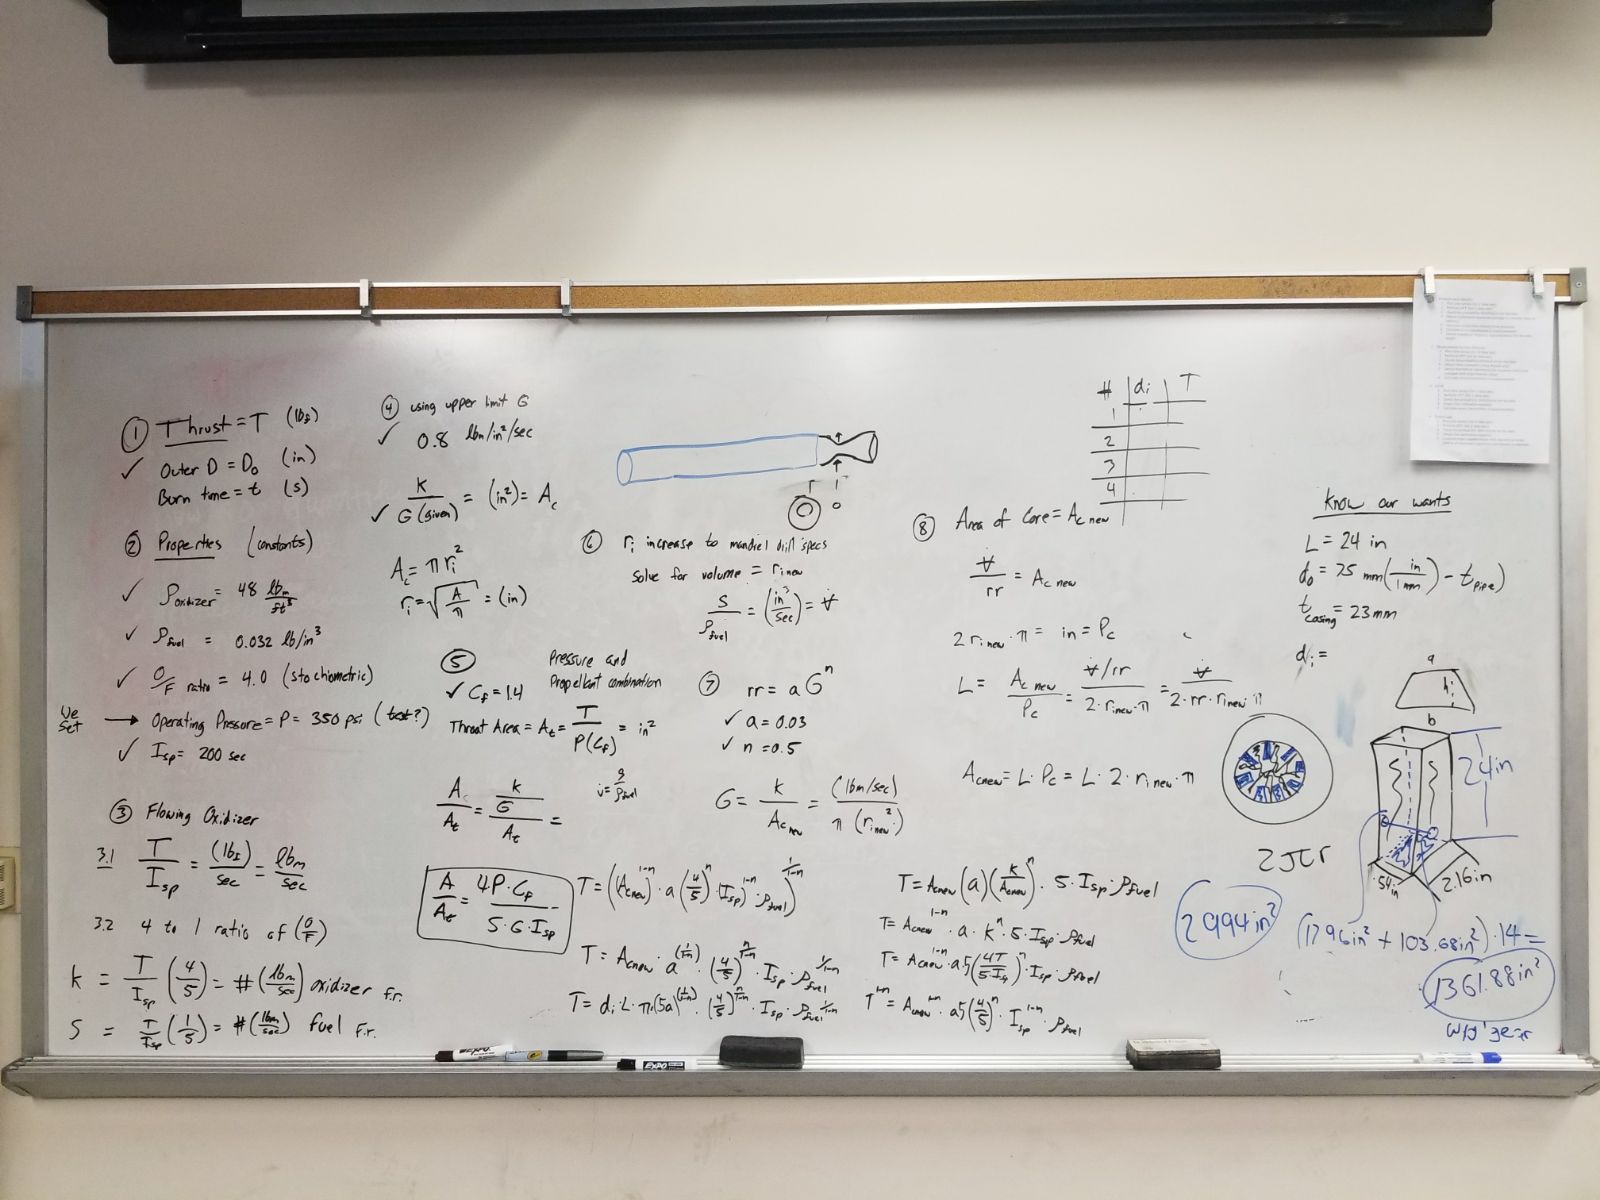 ① Thrust = T (lbf)
✓ Outer D = D₀ (in)
Burn time = t (s)
② Properties (constants)
✓ ρoxidizer = 48 lbm/ft³
✓ ρfuel = 0.032 lb/in³
✓ O/F ratio = 4.0 (stochiometric)
We set → Operating Pressure = P = 350 psi (test?)
✓ Isp = 200 sec
③ Flowing Oxidizer
3.1 T/Isp = (lbf)/sec = lbm/sec
3.2 4 to 1 ratio of (O/F)
K = T/Isp (4/5) = # (lbm/sec) oxidizer f.r.
S = T/Isp (1/5) = # (lbm/sec) fuel f.r.
④ using upper limit G
✓ 0.8 lbm/in²/sec
✓ K/G(given) = (in²) = Ac
Ac = π ri²
ri = √(A/π) = (in)
⑤ Pressure and
Propellant combination
✓ Cf = 1.4
Throat Area = At = T/P(Cf) = in²
Ac/At = (K/G)/At =
A/At = 4P·Cf/5·G·Isp
⑥ ri increase to mandrel drill specs
solve for volume = ri new
S/ρfuel = (in³/sec) = V̇
⑦ rr = a Gⁿ
✓ a = 0.03
✓ n = 0.5
G = K/Ac new = (lbm/sec)/π (ri new²)
T = ((Ac new)^1-n · a (4/5)^n · (Isp)^1-n · ρfuel)^1/1-n
T = Ac new · a^(1/1-n) · (4/5)^n/1-n · Isp · ρfuel^1/1-n
T = di · L · π · (5a)^(1/1-n) · (4/5)^n/1-n · Isp · ρfuel^1/1-n
# di T
1
2
3
4
⑧ Area of Core = Ac new
V̇/rr = Ac new
2 ri new · π = in = Pc
L = Ac new/Pc = V̇/rr/2·ri new·π = V̇/2·rr·ri new·π
Ac new = L · Pc = L · 2 · ri new · π
T = Ac new (a)(K/Ac new)^n · 5 · Isp · ρfuel
T = Ac new^1-n · a · K^n · 5 · Isp · ρfuel
T = Ac new^1-n · a5(4T/5·Isp)^n · Isp · ρfuel
T^1-n = Ac new^1-n · a5(4/5)^n · Isp^1-n · ρfuel
Know our wants
L = 24 in
do = 75 mm(in/mm) - tpipe)
tcasing = 23mm
di =
a
h
b
24in
.54in
2.16in
2πr
2994in²
(1296in² + 103.68in²)·14 =
1361.88in²
EXPO
EXPO